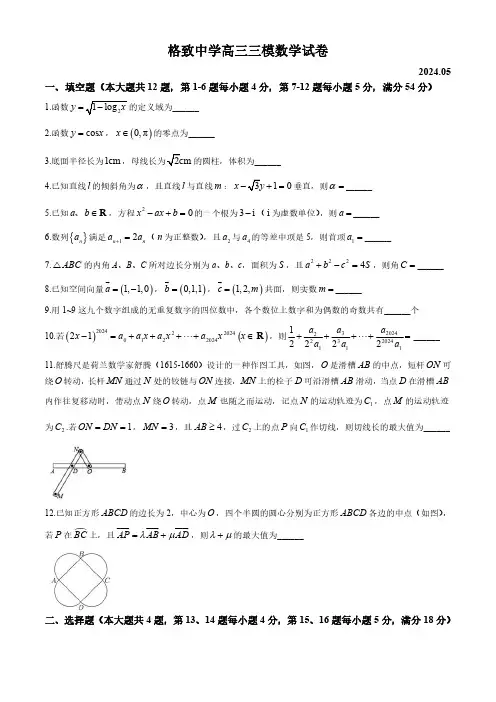 格致中学高三三模数学试卷
2024.05
一、填空题（本大题共12题，第1-6题每小题4分，第7-12题每小题5分，满分54分）
1.函数 y = √(1−log₂x) 的定义域为______
2.函数 y = cos x，x∈(0,π) 的零点为______
3.底面半径长为1cm，母线长为√2cm的圆柱，体积为______
4.已知直线 l 的倾斜角为 α，且直线 l 与直线 m：x−√3y+1=0 垂直，则 α=______
5.已知 a、b∈R，方程 x²−ax+b=0 的一个根为 3−i（i 为虚数单位），则 a=______
6.数列{aₙ}满足 aₙ₊₁=2aₙ（n 为正整数），且 a₂ 与 a₄ 的等差中项是5，则首项 a₁=______
7.△ABC 的内角 A、B、C 所对边长分别为 a、b、c，面积为 S，且 a²+b²−c²=4S，则角 C=______
8.已知空间向量 a⃗=(1,−1,0)，b⃗=(0,1,1)，c⃗=(1,2,m) 共面，则实数 m=______
9.用1~9这九个数字组成的无重复数字的四位数中，各个数位上数字和为偶数的奇数共有______个
10.若 (2x−1)²⁰²⁴=a₀+a₁x+a₂x²+⋯+a₂₀₂₄x²⁰²⁴(x∈R)，则 1/2+a₂/(2²a₁)+a₃/(2³a₁)+⋯+a₂₀₂₄/(2²⁰²⁴a₁)=______
11.舒腾尺是荷兰数学家舒腾（1615-1660）设计的一种作图工具，如图，O 是滑槽 AB 的中点，短杆 ON 可
绕 O 转动，长杆 MN 通过 N 处的铰链与 ON 连接，MN 上的栓子 D 可沿滑槽 AB 滑动，当点 D 在滑槽 AB
内作往复移动时，带动点 N 绕 O 转动，点 M 也随之而运动，记点 N 的运动轨迹为 C₁，点 M 的运动轨迹
为 C₂.若 ON=DN=1，MN=3，且 AB≥4，过 C₂ 上的点 P 向 C₁ 作切线，则切线长的最大值为______
N
A D O B
M
12.已知正方形 ABCD 的边长为2，中心为 O，四个半圆的圆心分别为正方形 ABCD 各边的中点（如图），
若 P 在 B͡C 上，且 AP⃗=λAB⃗+μAD⃗，则 λ+μ 的最大值为______
B
A C
D
二、选择题（本大题共4题，第13、14题每小题4分，第15、16题每小题5分，满分18分）